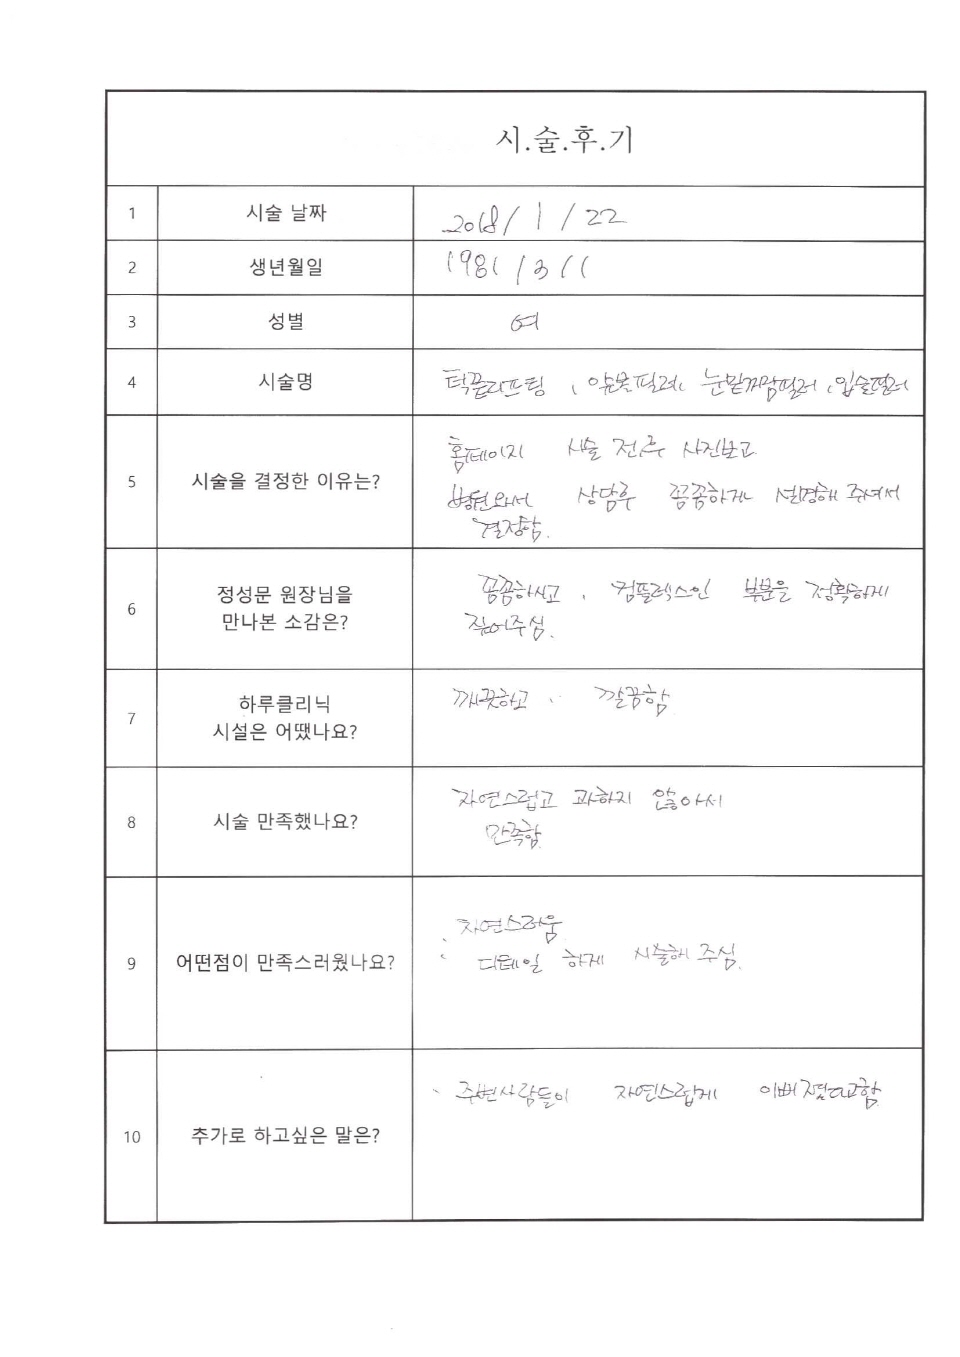 시.술.후.기
1 시술 날짜 2018/1/22
2 생년월일 1981/3/1
3 성별 여
4 시술명 턱끝리프팅, 앞볼필러, 눈밑지방필러, 입술필러
5 시술을 결정한 이유는?
홈페이지 시술 전/후 사진보고
병원와서 상담후 꼼꼼하게 설명해 주셔서
결정함.
6 정성문 원장님을
만나본 소감은?
꼼꼼하시고, 컴플렉스인 부분을 정확하게
짚어주심.
7 하루클리닉
시설은 어땠나요?
깨끗하고, 깔끔함
8 시술 만족했나요?
자연스럽고 과하지 않아서
만족함.
9 어떤점이 만족스러웠나요?
자연스러움
디테일 하게 시술해 주심.
10 추가로 하고싶은 말은?
주변사람들이 자연스럽게 이뻐졌다고함.